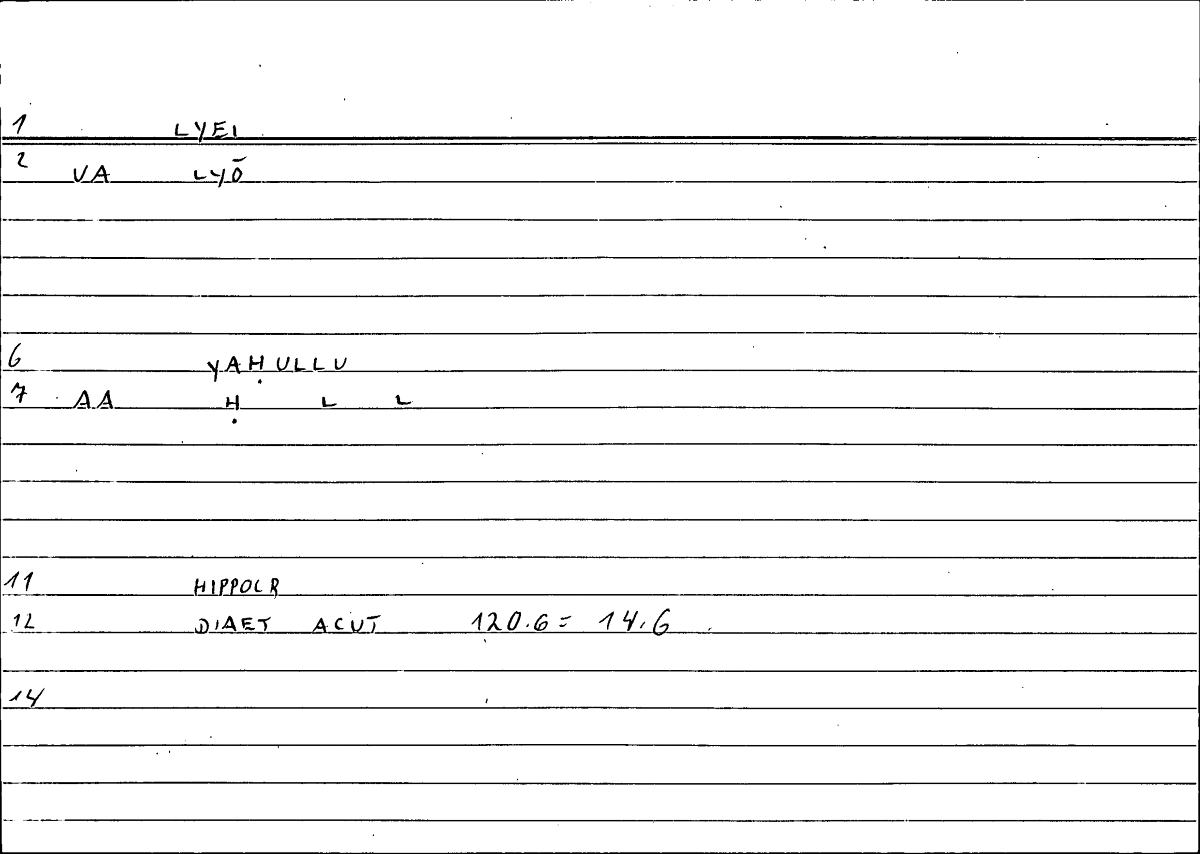 1 LYEI
2 VA LYŌ
6 YAḤULLU
7 AA Ḥ L L
11 HIPPOCR
12 DIAET ACUT 120.6 = 14,6
14